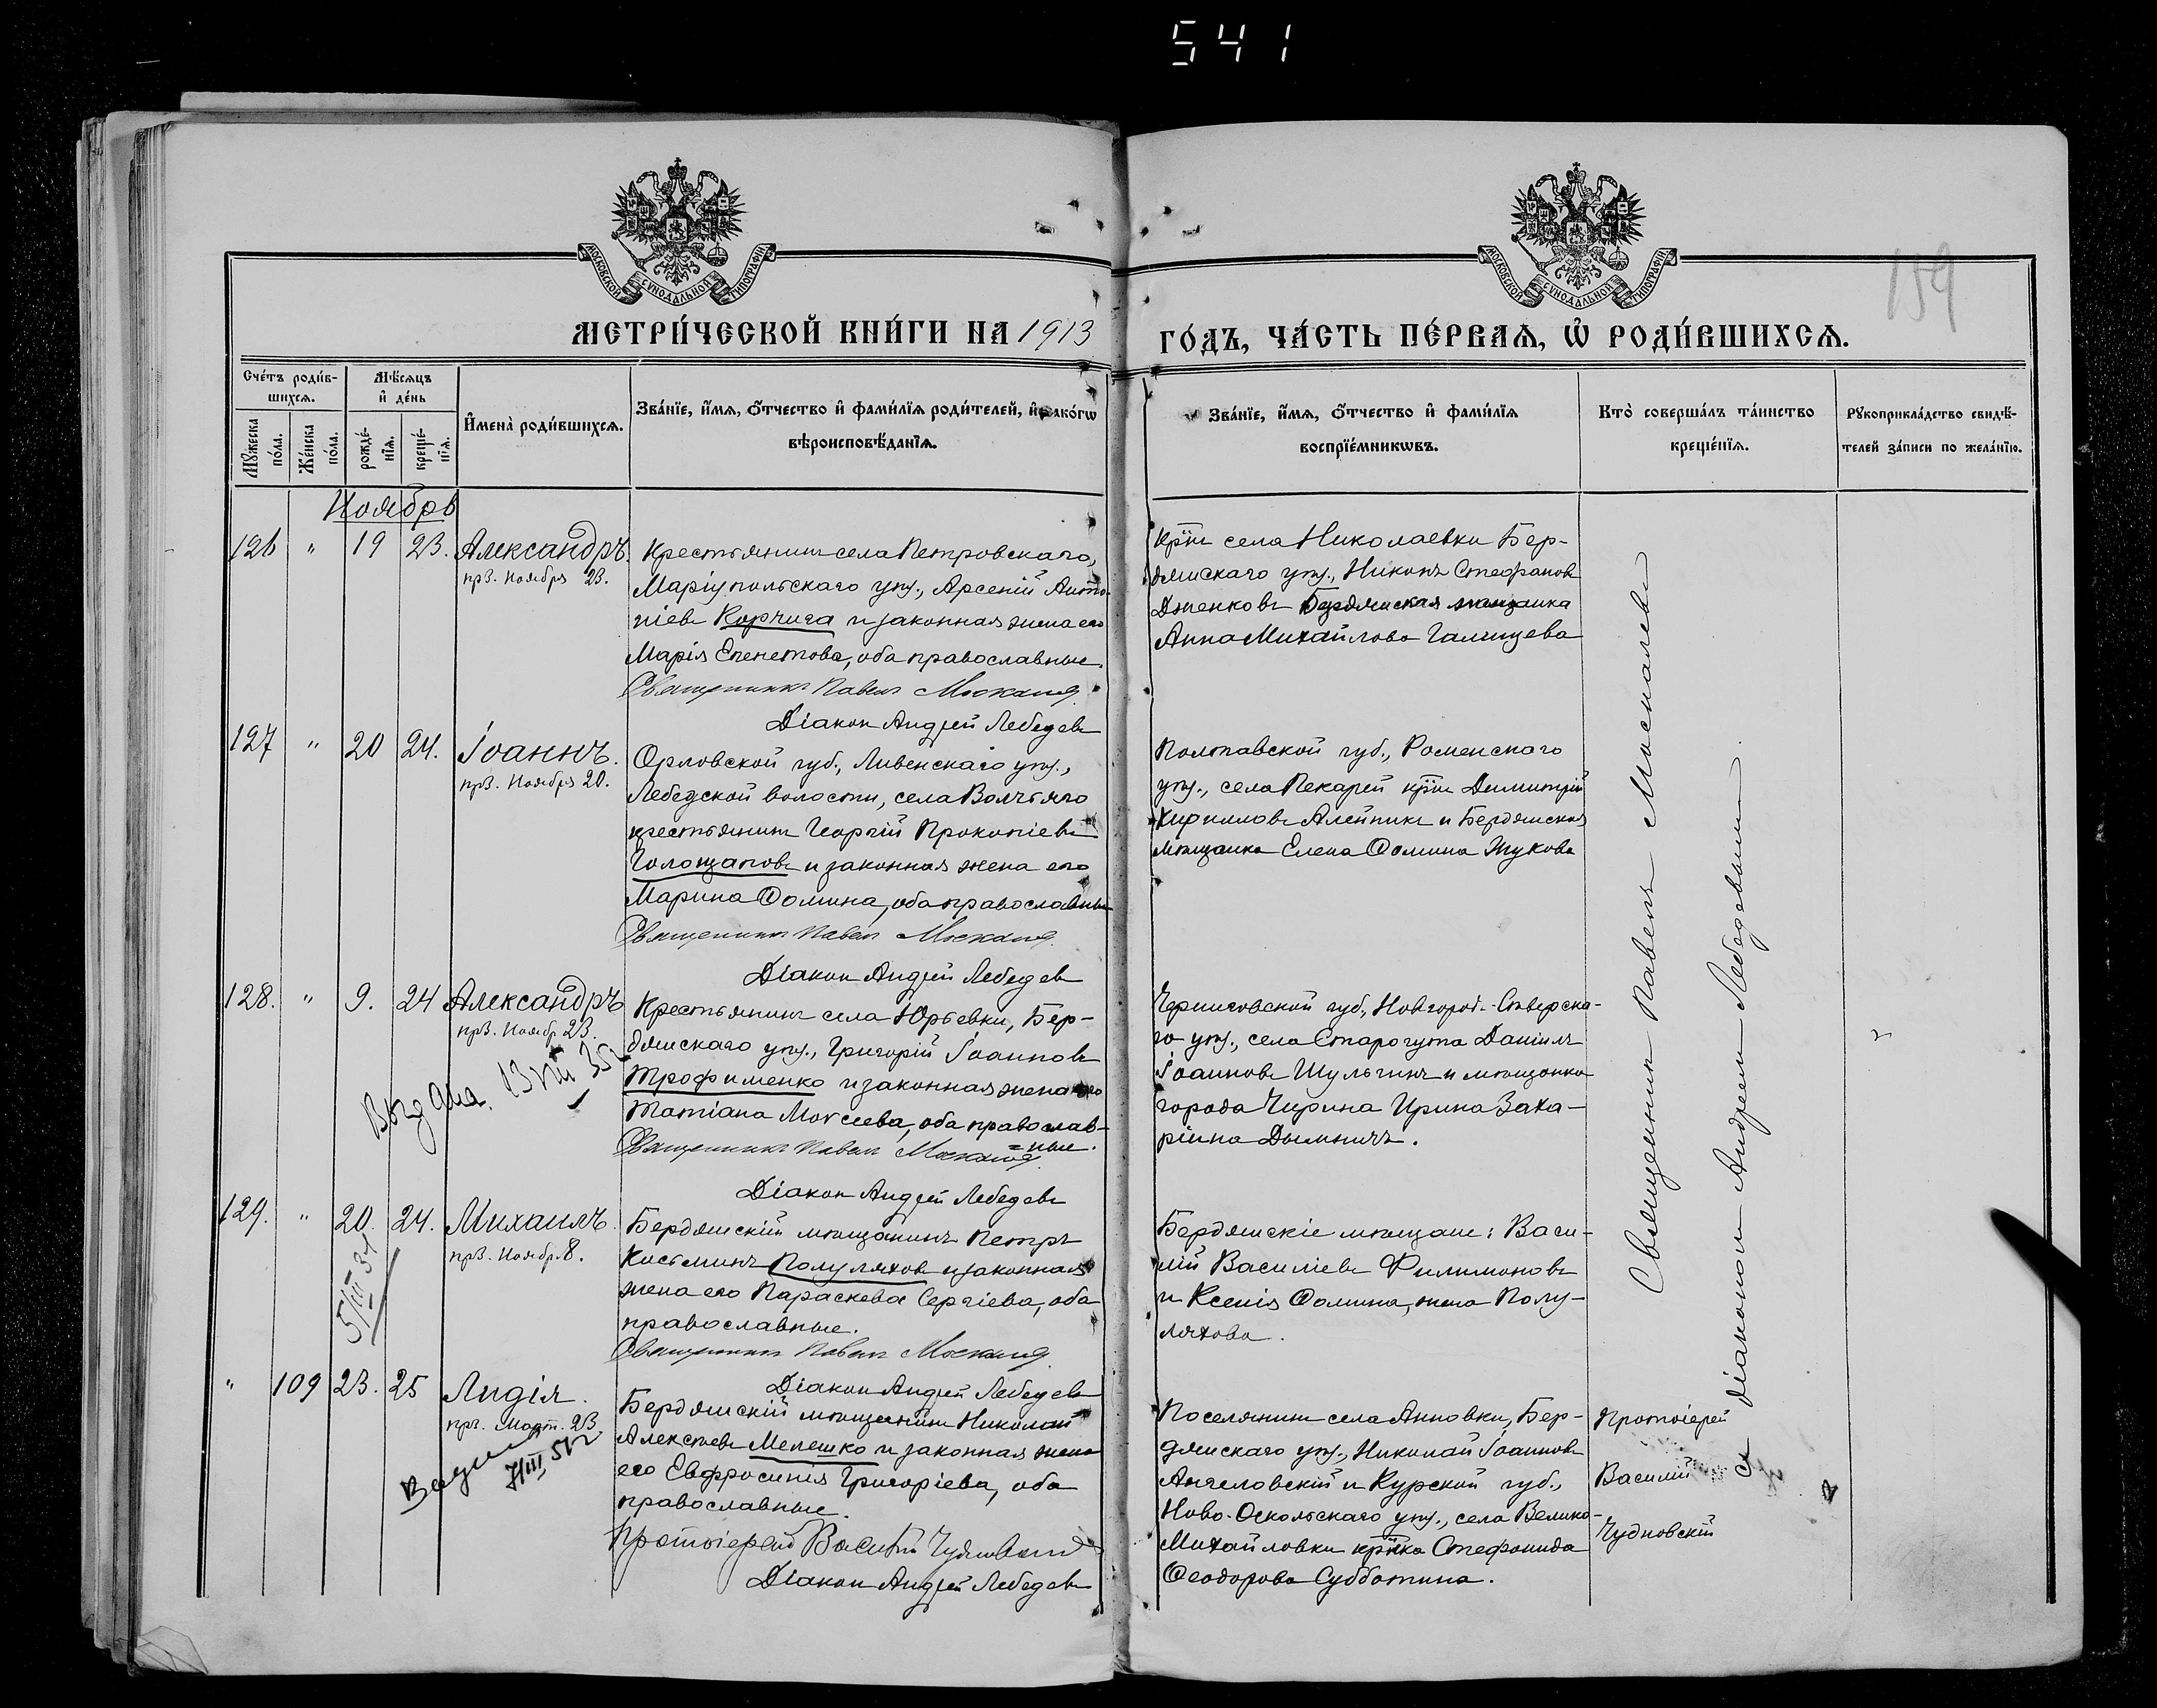 541
МОСКОВСКОЙ СѴНОДАЛЬНОЙ ТИПОГРАФІИ
МОСКОВСКОЙ СѴНОДАЛЬНОЙ ТИПОГРАФІИ
159
МЕТРИ́ЧЕСКОЙ КНИ́ГИ НА 1913
ГО́ДЪ, ЧА́СТЬ ПЕ́РВАѦ, Ѡ҆ РОДИ́ВШИХСѦ.
Сче́тъ роди́в-
шихсѧ.
Мѣ́сѧцъ
и҆ де́нь
Мꙋ́жеска
по́ла.
Же́нска
по́ла.
рожде́-
нїѧ.
креще́-
нїѧ.
И҆мена̀ роди́вшихсѧ.
Зва́нїе, и҆́мѧ, ѻ҆́тчество и҆ фами́лїѧ роди́телей, и҆ како́гѡ
вѣроисповѣ́данїѧ.
Зва́нїе, и҆́мѧ, ѻ҆́тчество и҆ фами́лїѧ
воспрїе́мникѡвъ.
Кто̀ соверша́лъ та́инство
креще́нїѧ.
Рꙋкоприкла́дство свидѣ́-
телей за́писи по жела́нїю.
Ноябрь
126 " 19 23. Александръ.
прз. Ноября 23.
Крестьянинъ села Петровскаго,
Маріупольскаго уѣз., Арсеній Анто-
ніевъ Корчига и законная жена его
Марія Епенетова, оба православные.
Священникъ Павелъ
Діаконъ Андрей Лебедевъ
Крⷭ҇тїн села Николаевки Бер-
дянскаго уѣз., Никонъ Стефановъ
Бердянская мѣщанка
Анна Михайлова Галицева
127 " 20 24. Іоаннъ.
прз. Ноября 20.
Орловской губ., Ливенскаго уѣз.,
Лебедской волости, села Волчьяго
крестьянинъ Георгій Прокопіевъ
Голощаповъ и законная жена его
Марина Ѳомина, оба православные
Священникъ Павелъ
Діаконъ Андрей Лебедевъ
Полтавской губ., Роменскаго
уѣз., села Пекарей Димитрій
Кирилловъ Алейникъ и Бердянская
мѣщанка Елена Ѳомина Жукова
128. " 9. 24 Александръ
прз. Ноябр. 23.
Выдана 13 VIII 35
Крестьянинъ села Юрьевки, Бер-
дянскаго уѣз., Григорій Іоанновъ
Трофименко и законная жена его
Татіана Моѵсеева, оба православ-
=ные.
Священникъ Павелъ
Діаконъ Андрей Лебедевъ
Черниговской губ., Новгород.-Сѣверска-
го уѣз., села Старогута Даніилъ
Іоанновъ Шульгинъ и мѣщанка
города Ирина Заха-
ріина
129. " 20. 24. Михаилъ.
прз. Ноябр. 8.
5/III 34
Бердянскій мѣщанинъ Петръ
Косьминъ Полуляхов и законная
жена его Параскева Сергіева, оба
православные.
Священникъ Павелъ
Діаконъ Андрей Лебедевъ
Бердянскіе мѣщане: Васи-
лій Василіевъ Филимоновъ
и Ксенія Ѳомина, жена Полу-
ляхова.
" 109 23. 25 Лидія.
пр. Март. 23.
Бердянскій мѣщанинъ Николай
Алексѣевъ Мелешко и законная жена
его Евфросинія Григоріева, оба
православные.
Протоіерей Василій Чудновскій
Діаконъ Андрей Лебедевъ
Поселянинъ села Анновки, Бер-
дянскаго уѣз., Николай Іоанновъ
Ангеловскій и Курской губ.,
Ново-Оскольскаго уѣз., села Велико-
Михайловки Стефанида
Ѳеодорова Субботина.
Священник Павелъ Москалевъ
съ діаконом Андреем Лебедевымъ.
Протоіерей
Василій
Чудновскій